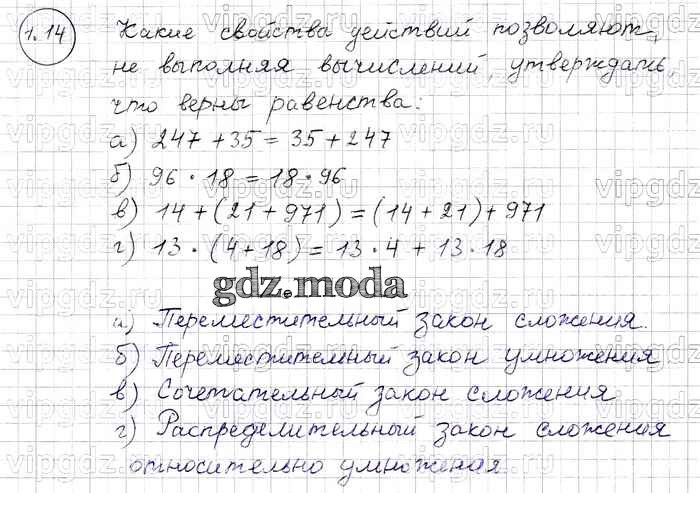 1.14
Какие свойства действий позволяют,
не выполняя вычислений, утверждать,
что верны равенства:
а) 247 + 35 = 35 + 247
б) 96 · 18 = 18 · 96
в) 14 + (21 + 971) = (14 + 21) + 971
г) 13 · (4 + 18) = 13 · 4 + 13 · 18
gdz.moda
а) Переместительный закон сложения.
б) Переместительный закон умножения
в) Сочетательный закон сложения
г) Распределительный закон сложения
относительно умножения.